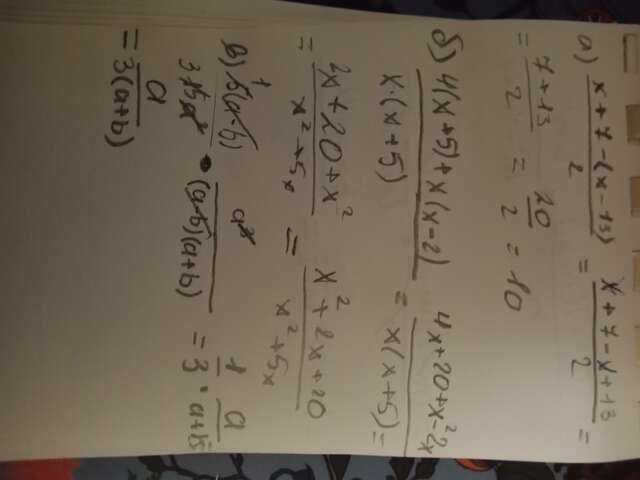 а) (x+7-(x-13))/2 = (x+7-x+13)/2 =
= (7+13)/2 = 20/2 = 10
б) (4(x+5)+x(x-2))/(x·(x+5)) = (4x+20+x²-2x)/(x(x+5)) =
= (2x+20+x²)/(x²+5x) = (x²+2x+20)/(x²+5x)
в) 5(a-b)/15a² · a³/((a-b)(a+b)) = 1/3 · a/(a+b)
= a/(3(a+b))